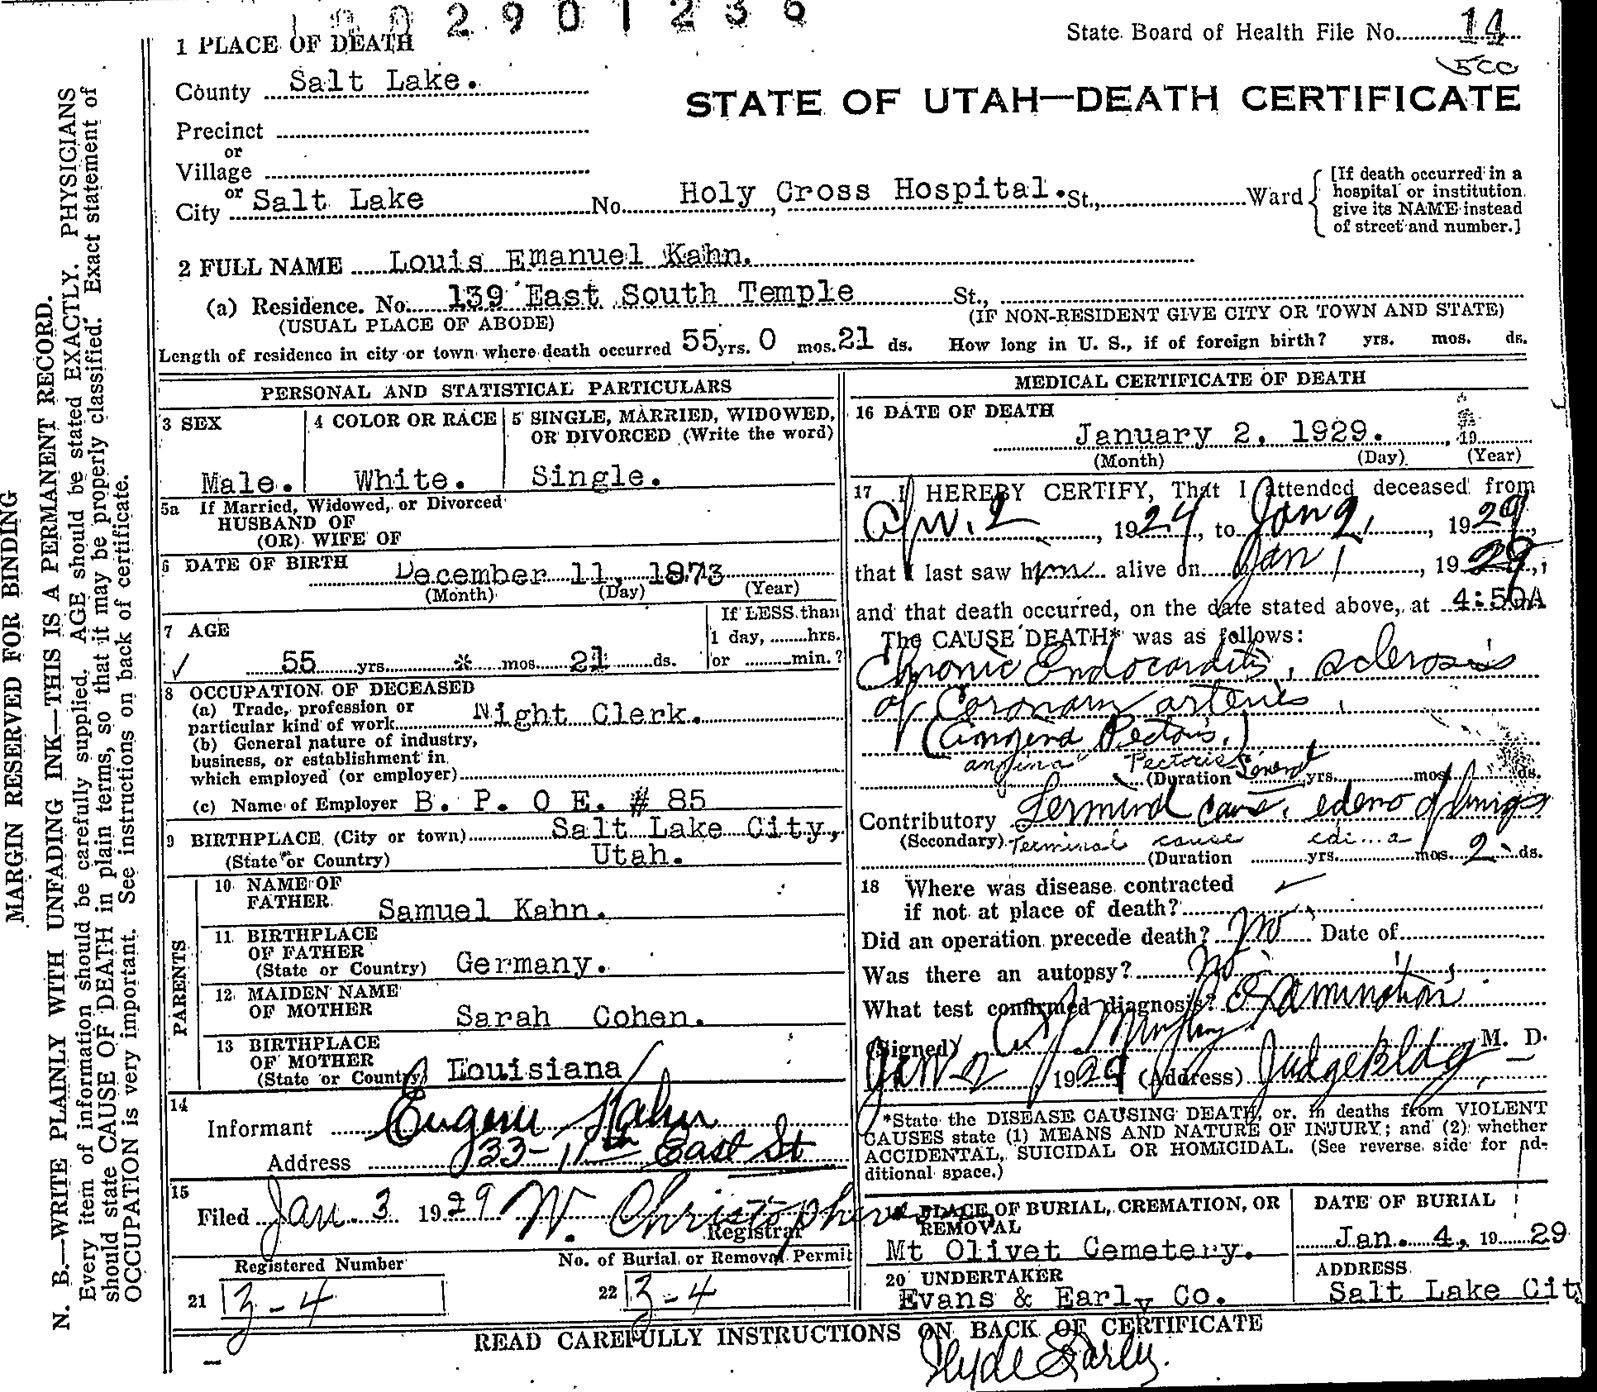 2901236
1 PLACE OF DEATH
State Board of Health File No. 14
500
County Salt Lake.
STATE OF UTAH—DEATH CERTIFICATE
Precinct
or
Village
or
City Salt Lake No. Holy Cross Hospital. St., Ward
[If death occurred in a
hospital or institution
give its NAME instead
of street and number.]
2 FULL NAME Louis Emanuel Kahn.
(a) Residence. No. 139 East South Temple St.,
(USUAL PLACE OF ABODE) (IF NON-RESIDENT GIVE CITY OR TOWN AND STATE)
Length of residence in city or town where death occurred 55 yrs. 0 mos. 21 ds. How long in U. S., if of foreign birth? yrs. mos. ds.
PERSONAL AND STATISTICAL PARTICULARS
3 SEX
Male.
4 COLOR OR RACE
White.
5 SINGLE, MARRIED, WIDOWED,
OR DIVORCED (Write the word)
Single.
5a If Married, Widowed, or Divorced
HUSBAND OF
(OR) WIFE OF
6 DATE OF BIRTH December 11, 1873
(Month) (Day) (Year)
7 AGE
55 yrs. * mos. 21 ds.
If LESS than
1 day, hrs.
or min.?
8 OCCUPATION OF DECEASED
(a) Trade, profession or
particular kind of work Night Clerk.
(b) General nature of industry,
business, or establishment in
which employed (or employer)
(c) Name of Employer B. P. O E. # 85
9 BIRTHPLACE (City or town) Salt Lake City,
(State or Country) Utah.
PARENTS
10 NAME OF
FATHER Samuel Kahn.
11 BIRTHPLACE
OF FATHER
(State or Country) Germany.
12 MAIDEN NAME
OF MOTHER Sarah Cohen.
13 BIRTHPLACE
OF MOTHER
(State or Country) Louisiana
14
Informant Eugene Kahn
Address 33-11th East St
15
Filed Jan. 3 1929 W. Christopherson
Registrar
Registered Number
21 3-4
No. of Burial or Removal Permit
22 3-4
MEDICAL CERTIFICATE OF DEATH
16 DATE OF DEATH
January 2, 1929. 19
(Month) (Day) (Year)
17 I HEREBY CERTIFY, That I attended deceased from
Apr. 2, 1924, to Jan 2, 1929,
that I last saw him alive on Jan 1, 1929,
and that death occurred, on the date stated above, at 4:50A
The CAUSE DEATH* was as follows:
Chronic Endocarditis, sclerosis
of Coronary arteries
(Angina Pectoris.)
angina Pectoris
(Duration Several yrs. mos. ds.
Contributory Terminal cause, edema of lungs
(Secondary) Terminal cause
(Duration yrs. mos. 2 ds.
18 Where was disease contracted
if not at place of death?
Did an operation precede death? No Date of
Was there an autopsy? No
What test confirmed diagnosis? Examination
(Signed) M. D.
Jan 2, 1929 (Address) Judge Bldg,
*State the DISEASE CAUSING DEATH, or, in deaths from VIOLENT
CAUSES state (1) MEANS AND NATURE OF INJURY; and (2) whether
ACCIDENTAL, SUICIDAL OR HOMICIDAL. (See reverse side for ad-
ditional space.)
19 PLACE OF BURIAL, CREMATION, OR
REMOVAL
Mt Olivet Cemetery.
DATE OF BURIAL
Jan. 4, 19 29
20 UNDERTAKER
Evans & Early Co.
ADDRESS
Salt Lake City
READ CAREFULLY INSTRUCTIONS ON BACK OF CERTIFICATE
Clyde Early.
MARGIN RESERVED FOR BINDING
N. B.—WRITE PLAINLY WITH UNFADING INK—THIS IS A PERMANENT RECORD.
Every item of information should be carefully supplied. AGE should be stated EXACTLY. PHYSICIANS
should state CAUSE OF DEATH in plain terms, so that it may be properly classified. Exact statement of
OCCUPATION is very important. See instructions on back of certificate.